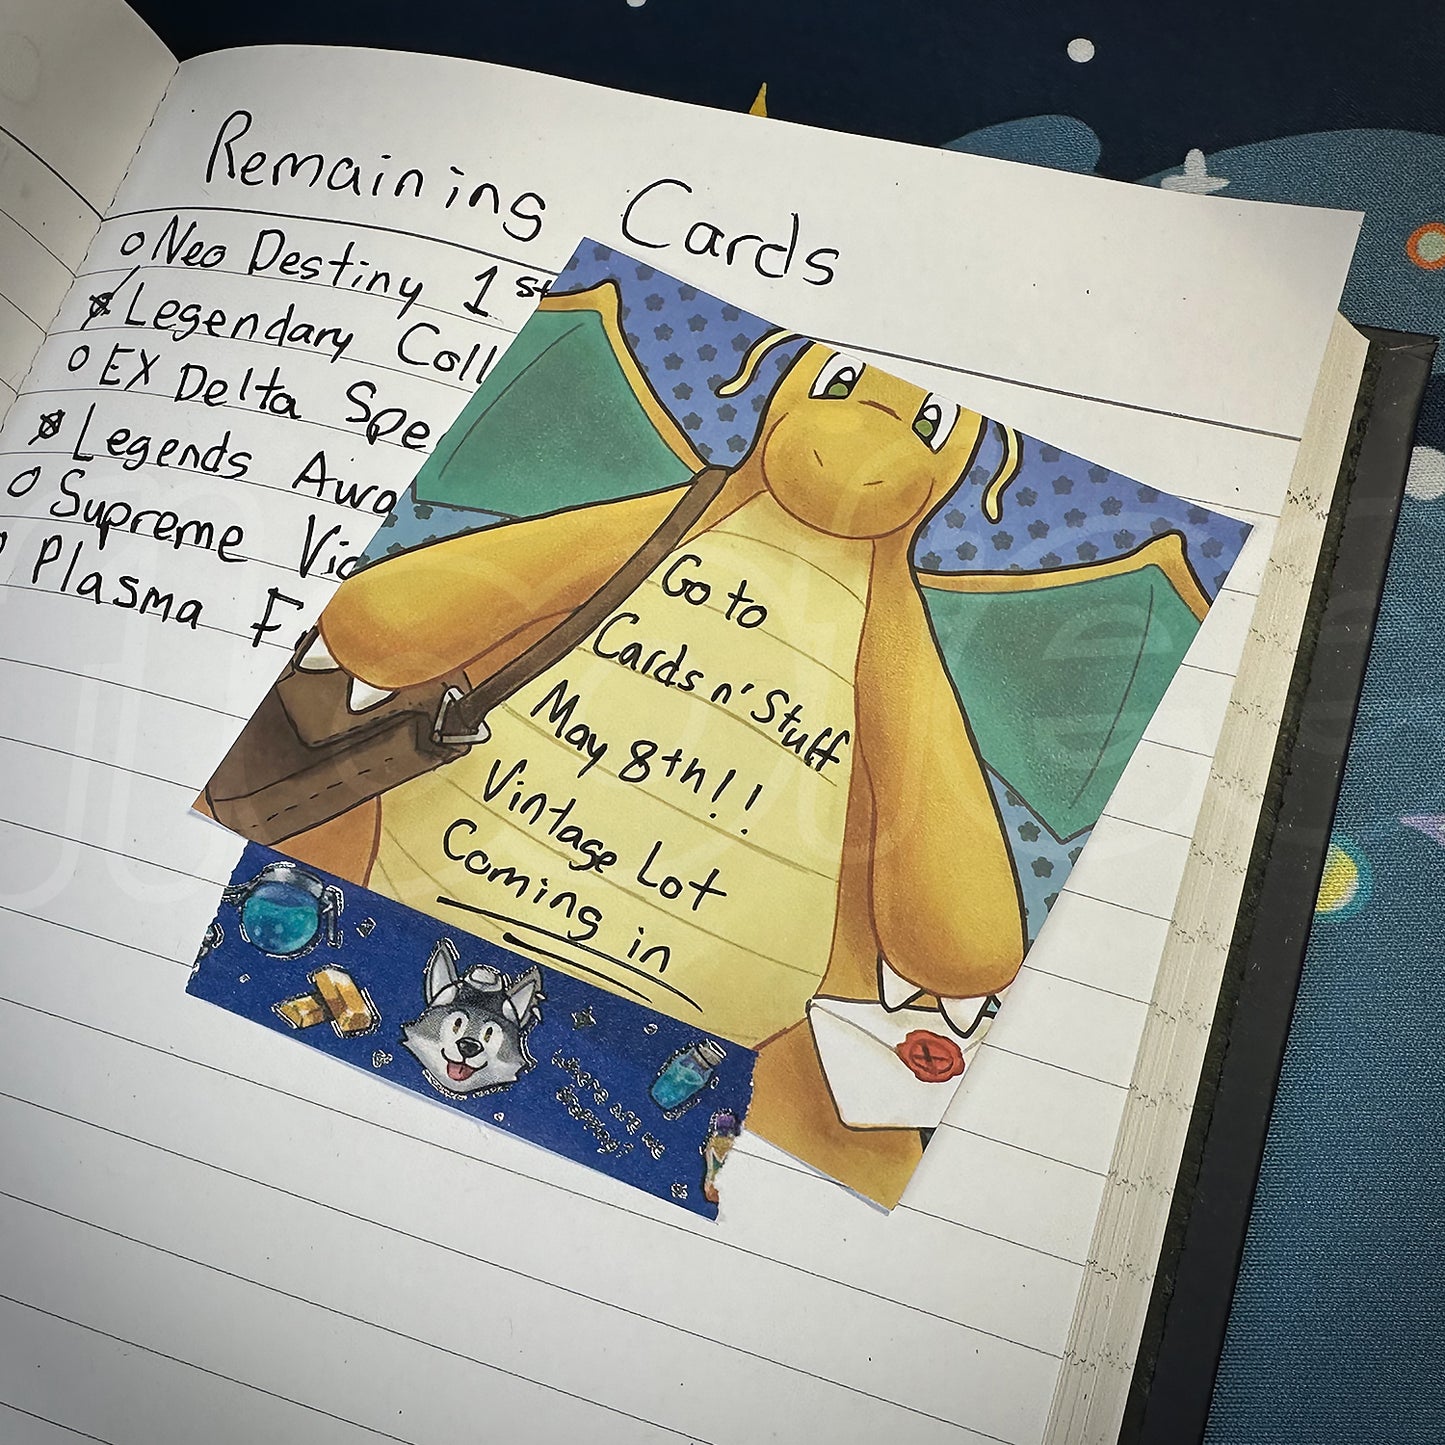 Remaining Cards
Neo Destiny 1st
Legendary Coll
EX Delta Spe
Legends Awa
Supreme Vic
Plasma F
Go to
Cards n' Stuff
May 8th!!
Vintage Lot
Coming in
where are we
dropping?